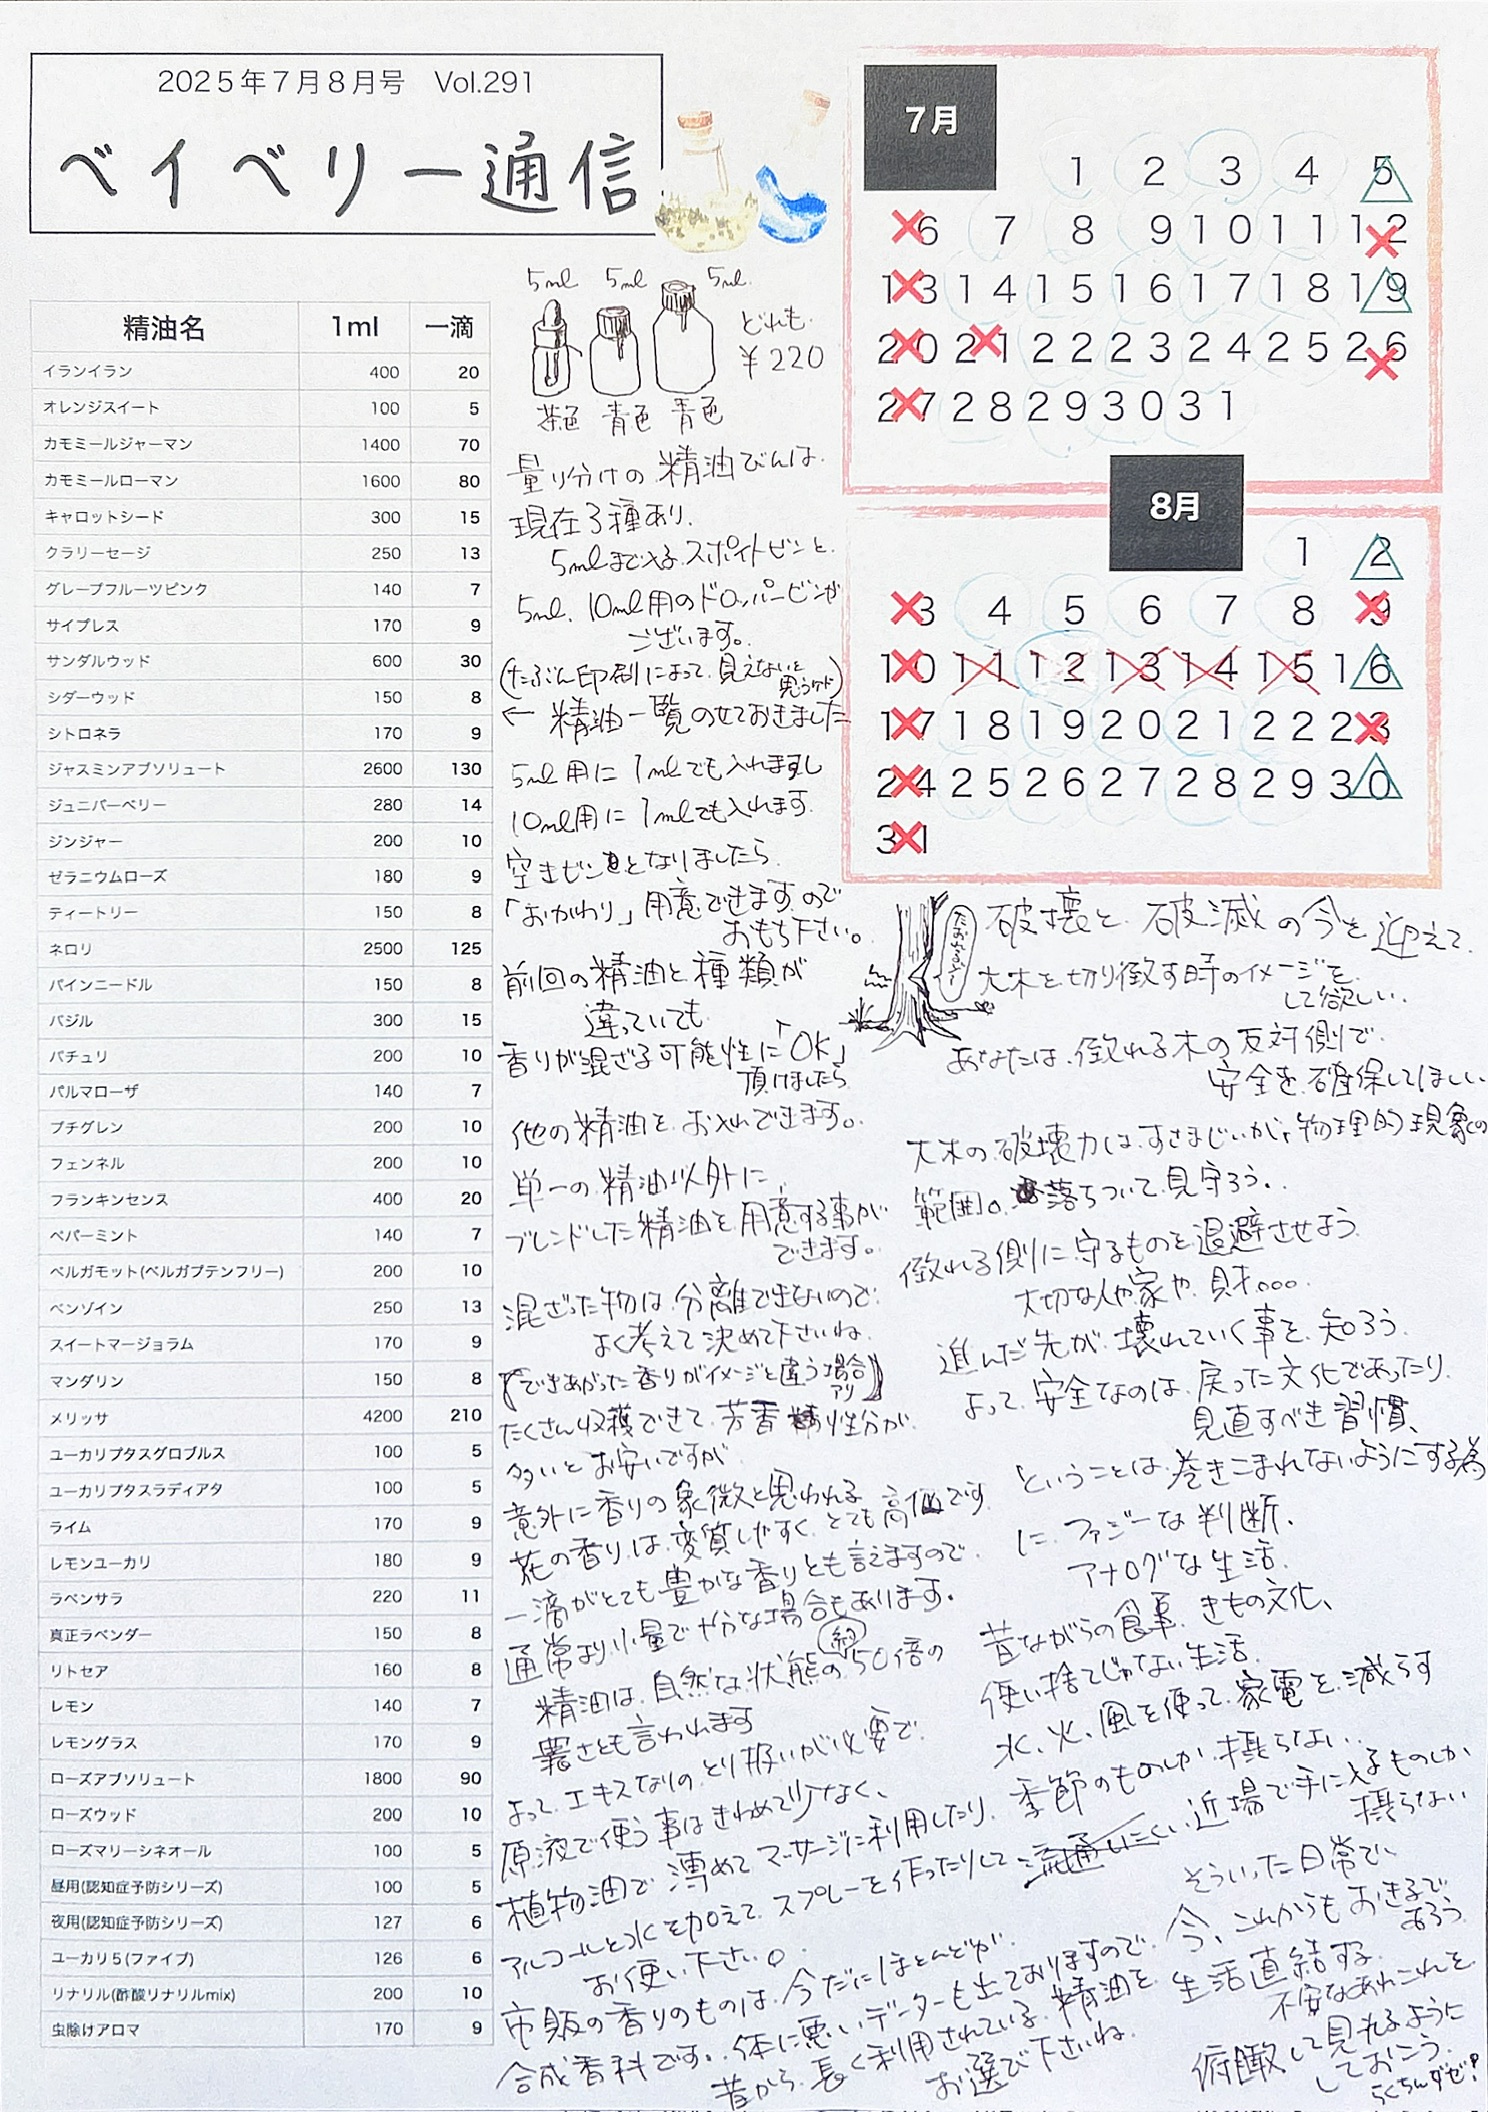 2025年7月8月号 Vol.291
ベイベリー通信
精油名 1ml 一滴
イランイラン 400 20
オレンジスイート 100 5
カモミールジャーマン 1400 70
カモミールローマン 1600 80
キャロットシード 300 15
クラリーセージ 250 13
グレープフルーツピンク 140 7
サイプレス 170 9
サンダルウッド 600 30
シダーウッド 150 8
シトロネラ 170 9
ジャスミンアブソリュート 2600 130
ジュニパーベリー 280 14
ジンジャー 200 10
ゼラニウムローズ 180 9
ティートリー 150 8
ネロリ 2500 125
パインニードル 150 8
バジル 300 15
パチュリ 200 10
パルマローザ 140 7
プチグレン 200 10
フェンネル 200 10
フランキンセンス 400 20
ペパーミント 140 7
ベルガモット(ベルガプテンフリー) 200 10
ベンゾイン 250 13
スイートマージョラム 170 9
マンダリン 150 8
メリッサ 4200 210
ユーカリプタスグロブルス 100 5
ユーカリプタスラディアタ 100 5
ライム 170 9
レモンユーカリ 180 9
ラベンサラ 220 11
真正ラベンダー 150 8
リトセア 160 8
レモン 140 7
レモングラス 170 9
ローズアブソリュート 1800 90
ローズウッド 200 10
ローズマリーシネオール 100 5
昼用(認知症予防シリーズ) 100 5
夜用(認知症予防シリーズ) 127 6
ユーカリ5(ファイブ) 126 6
リナリル(酢酸リナリルmix) 200 10
虫除けアロマ 170 9
5ml 5ml 5ml
どれも
¥220
茶色 青色 青色
量り分けの精油びんは
現在3種あり、
5mlまで入るスポイトビンと
5ml、10ml用のドロッパービンが
ございます。
(たぶん印刷によって見えないと
思うケド)
← 精油一覧のせておきました
5ml用に1mlでも入れますし
10ml用に1mlでも入れます
空きビンとなりましたら
「おかわり」用意できますので
おもち下さい。
前回の精油と種類が
違っていても
香りが混ざる可能性に「OK」
頂けましたら
他の精油をお入れできます。
単一の精油以外に
ブレンドした精油を用意する事が
できます。
混ざった物は分離できないので
よく考えて決めて下さいね
(できあがった香りがイメージと違う場合
アリ)
たくさん収穫できて芳香性分が
多いとお安いですが
意外に香りの象徴と思われる
花の香りは変質しやすく、とても高価です
一滴がとても豊かな香りとも言えますので
通常より少量で十分な場合もあります。
精油は自然な状態の約50倍の
濃さとも言われます
よってエキスなりのとり扱いが必要で
原液で使う事はきわめて少なく、
植物油で薄めてマッサージに利用したり、
アルコールと水を加えてスプレーを作ったりして
お使い下さい。
市販の香りのものは今だにほとんどが
合成香料です。体に悪いデーターも出ておりますので、
昔から長く利用されている精油を
お選び下さいね
7月
1 2 3 4 5
6 7 8 9 10 11 12
13 14 15 16 17 18 19
20 21 22 23 24 25 26
27 28 29 30 31
8月
1 2
3 4 5 6 7 8 9
10 11 12 13 14 15 16
17 18 19 20 21 22 23
24 25 26 27 28 29 30
31
たおれるぞー
破壊と破滅の今を迎えて
大木を切り倒す時のイメージを
して欲しい。
あなたは倒れる木の反対側で
安全を確保してほしい
大木の破壊力はすさまじいが、物理的現象の
範囲。落ちついて見守ろう。
倒れる側に守るものを退避させよう
大切な人や家や財…
進んだ先が壊れていく事を知ろう
よって安全なのは戻った文化であったり
見直すべき習慣、
ということは巻きこまれないようにする為
に、ファジーな判断、
アナログな生活
昔ながらの食事、きもの文化、
使い捨てじゃない生活
水、火、風を使って家電を減らす
季節のものしか摂らない
流通しにくい近場で手に入るものしか
摂らない
そういった日常で、
今、これからもおきるで
あろう
生活直結する
不安なあれこれを
俯瞰して見れるように
しておこう
らくちんだぜ!